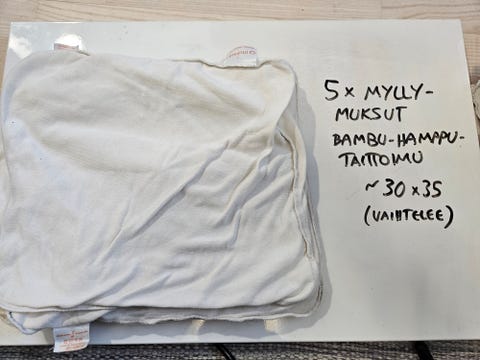 5 x MYLLY-
MUKSUT
BAMBU-HAMPPU-
TAITTOIMU
~ 30 x 35
(VAIHTELEE)